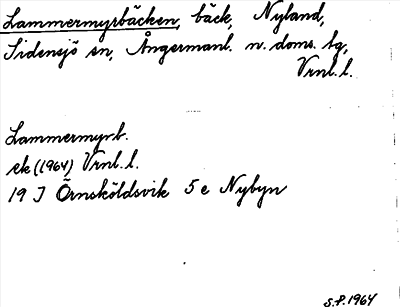 Lammermyrbäcken, bäck, Nyland,
Sidensjö sn, Ångermanl. n. doms. lg,
Vrnl. l.
Lammermyrb.
ek (1964) Vrnl. l.
19 J Örnsköldsvik 5 e Nybyn
S.P. 1964